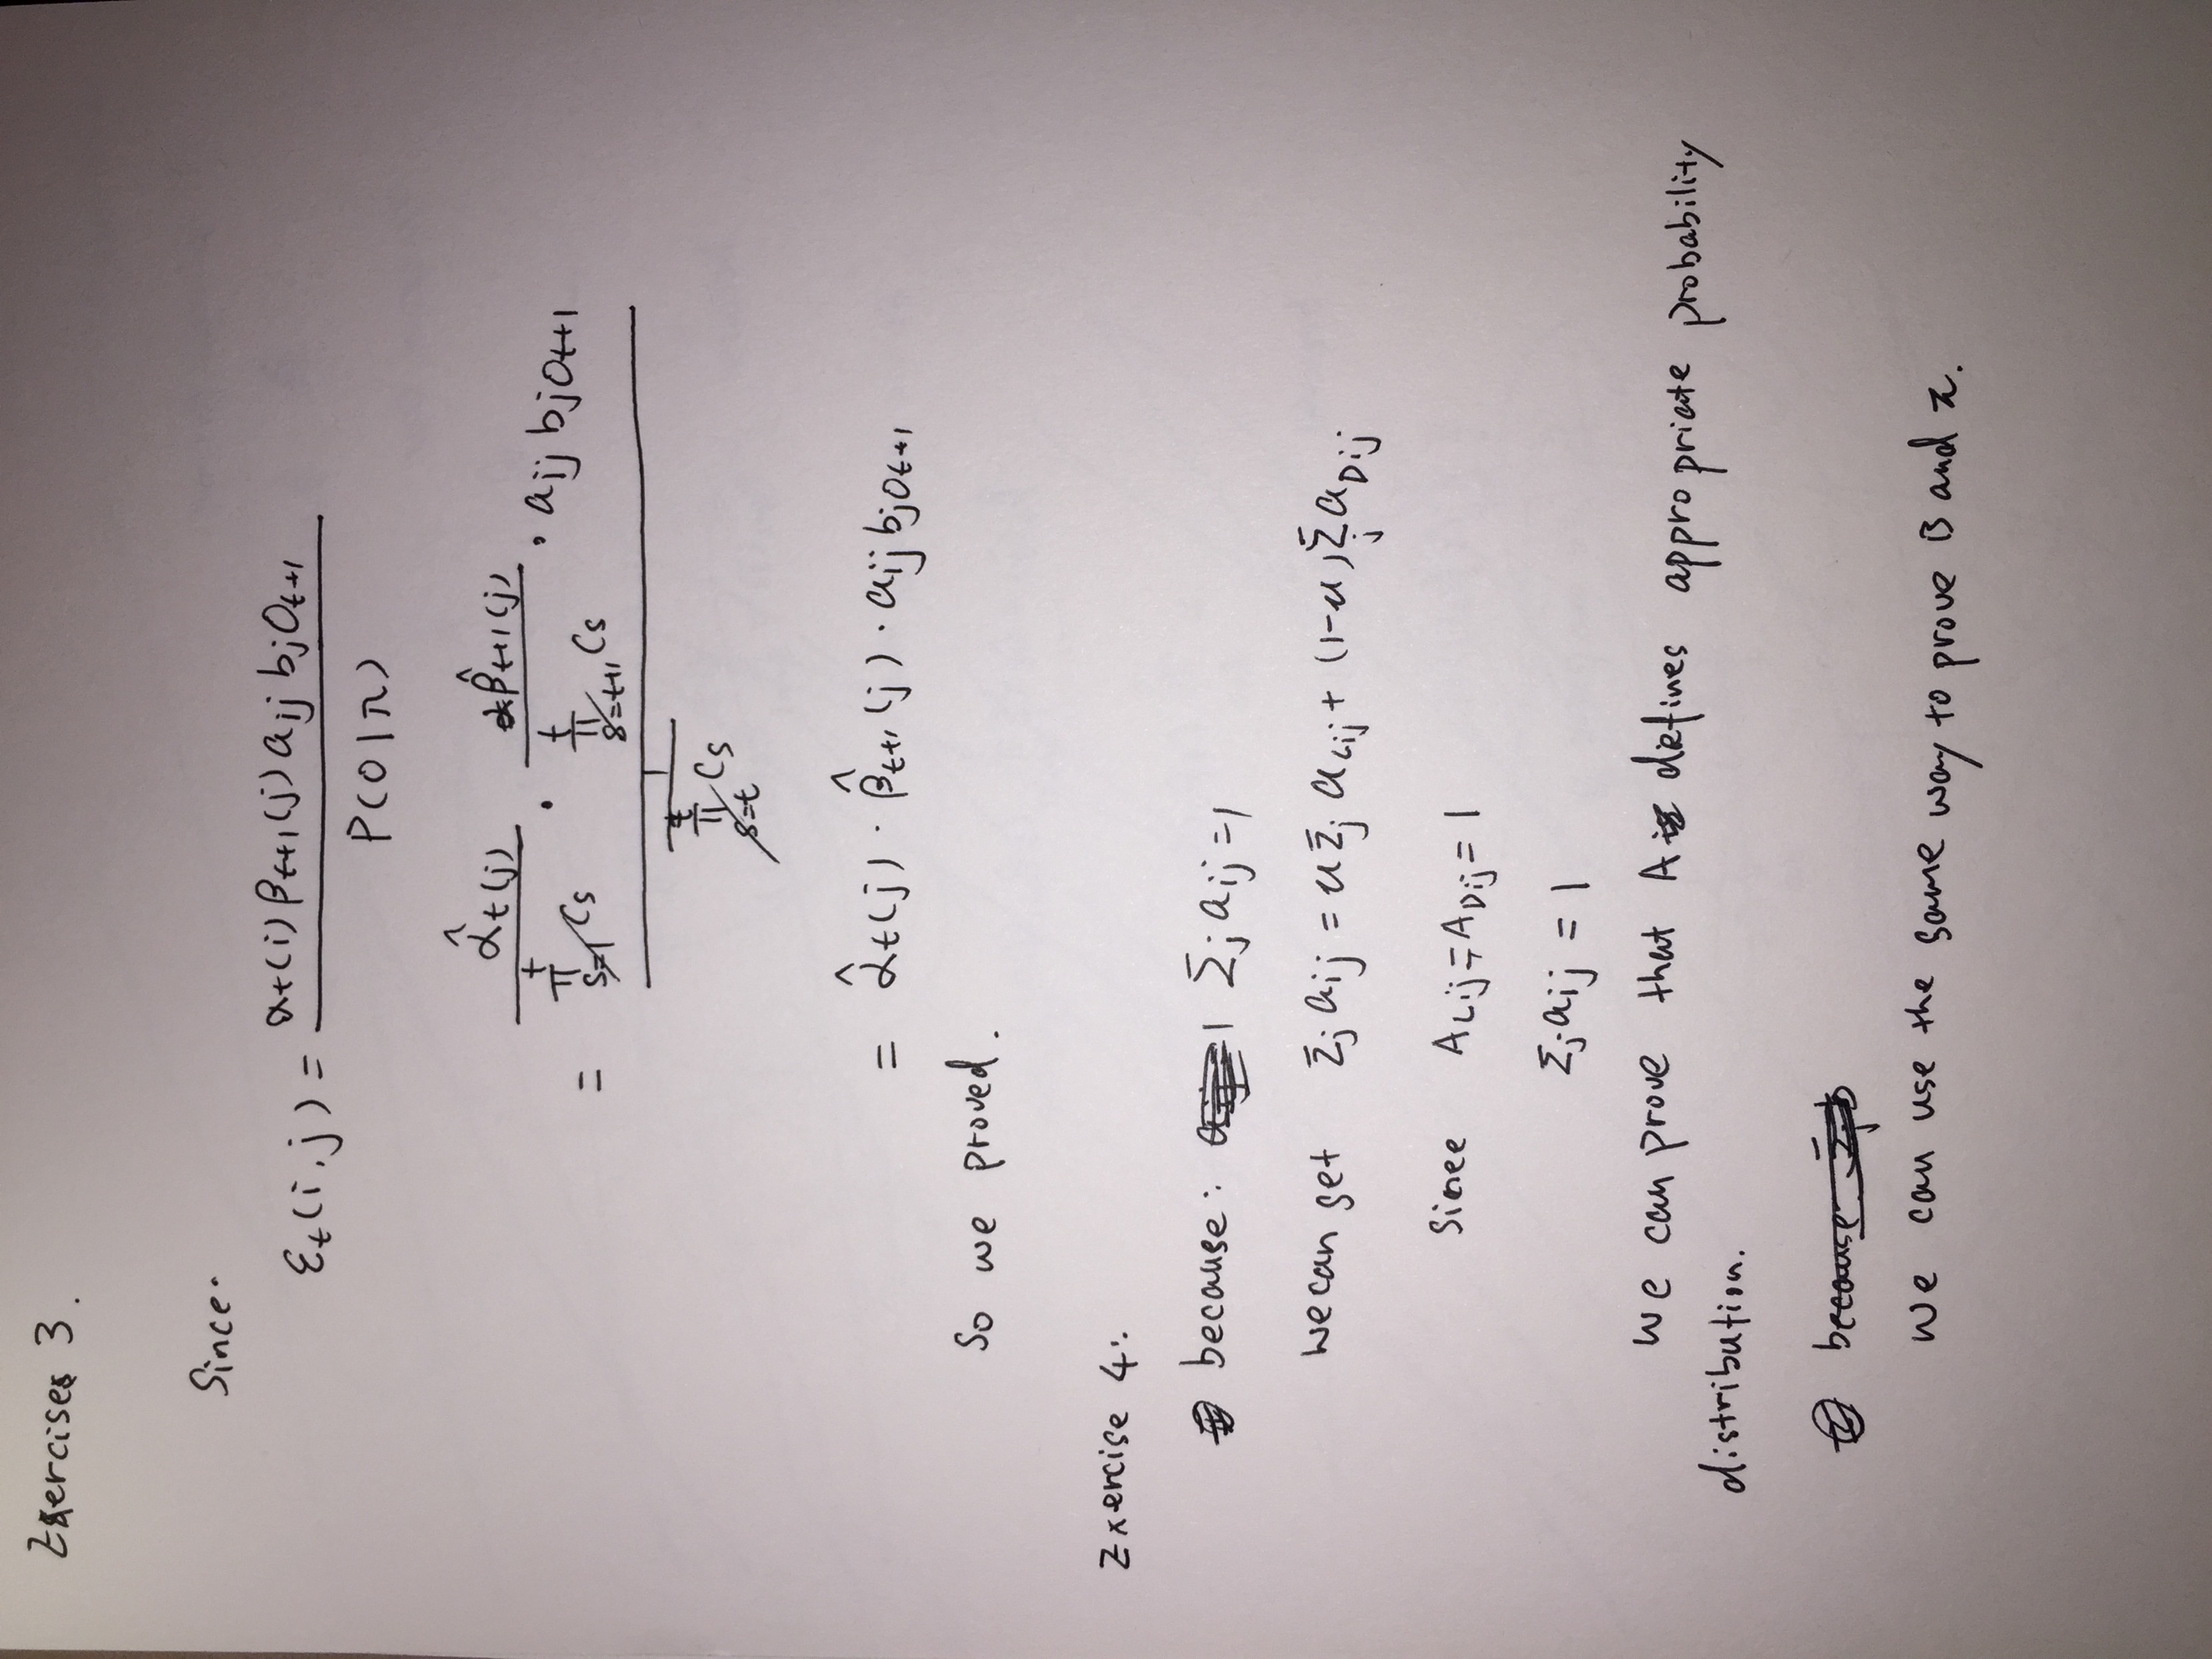 Exercises 3.
Since.
ε_t(i,j) = α_t(i) β_{t+1}(j) a_{ij} b_j O_{t+1} / P(O|π)
= ( α̂_t(j) / ∏_{s=1}^{t} C_s · β̂_{t+1}(j) / ∏_{s=t+1}^{t} C_s · a_{ij} b_j O_{t+1} ) / ( 1 / ∏_{s=t} C_s )
= α̂_t(j) · β̂_{t+1}(j) · a_{ij} b_j O_{t+1}
So we proved.
Exercise 4:
because: 1 Σ_j a_{ij} = 1
we can get Σ_j a_{ij} = u Σ_j a_{Lij} + (1-u) Σ_j a_{Dij}
Since A_{Lij} = A_{Dij} = 1
Σ_j a_{ij} = 1
we can prove that A defines appropriate probability
distribution.
because
we can use the same way to prove B and π.